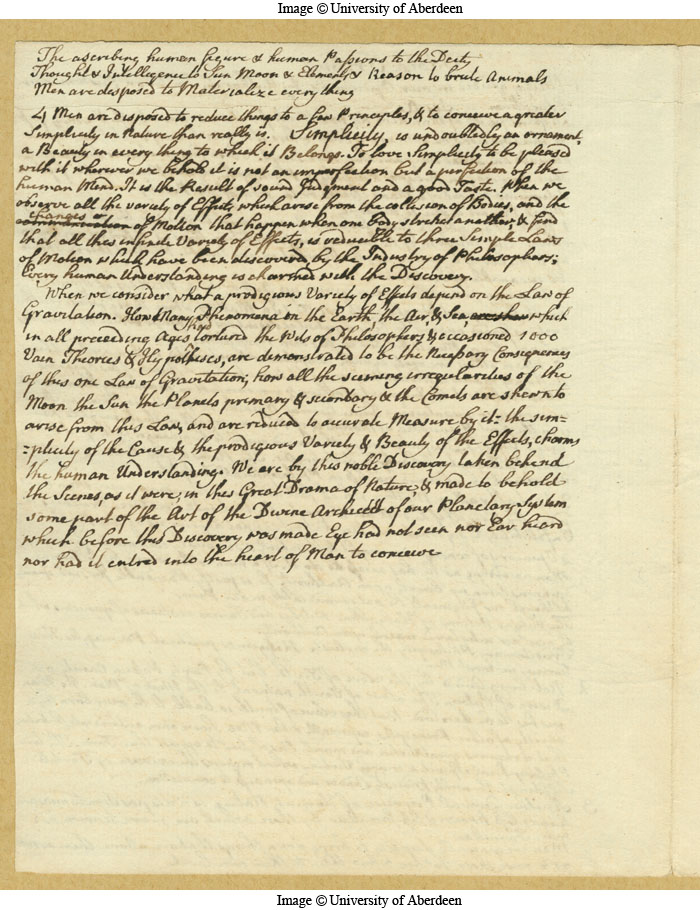 Image © University of Aberdeen
The ascribing human figure & human Passions to the Deity
Thought & Intelligence to Sun Moon & Elements & Reason to brute Animals
Men are desposed to Materialize every thing
4 Men are disposed to reduce things to a few Principles, & to conceive a greater
Simplicity in Nature than really is. Simplicity is undoubtedly an ornament,
a Beauty in every thing to which it Belongs. To love Simplicity to be pleased
with it wherever we behold it is not an imperfection but a perfection of the
human Mind. It is the Result of sound Judgment and a good Taste. When we
observe all the variety of Effects which arise from the collision of Bodies, and the
changes or
communication of Motion that happen when one body strikes another, & find
that all this infinite Variety of Effects, is reducible to three Simple Laws
of Motion which have been discovered by the Industry of Philosophers;
Every human Understanding is charmed with the Discovery.
When we consider what a prodigious Variety of Effects depend on the Law of
Gravitation. How Many Phenomena on the Earth the Air, & Sea are shown which
had
in all preceeding Ages tortured the Wits of Philosophers & occasioned 1000
Vain Theories & Hypotheses, are demonstrated to be the Necessary Consequences
of this one Law of Gravitation; how all the seeming irregularities of the
Moon the Sun the Planets primary & secondary & the Comets are shewn to
arise from this Law, and are reduced to accurate Measure by it: the sim=
=plicity of the Cause & the prodigious Variety & Beauty of the Effects, charms
the human Understanding. We are by this noble Discovery taken behind
the Scenes, as it were, in this Great Drama of Nature, & made to behold
some part of the Art of the Divine Architect of our Planetary System
which before this Discovery was made Eye had not seen nor Ear heard
nor had it entred into the heart of Man to conceive
Image © University of Aberdeen